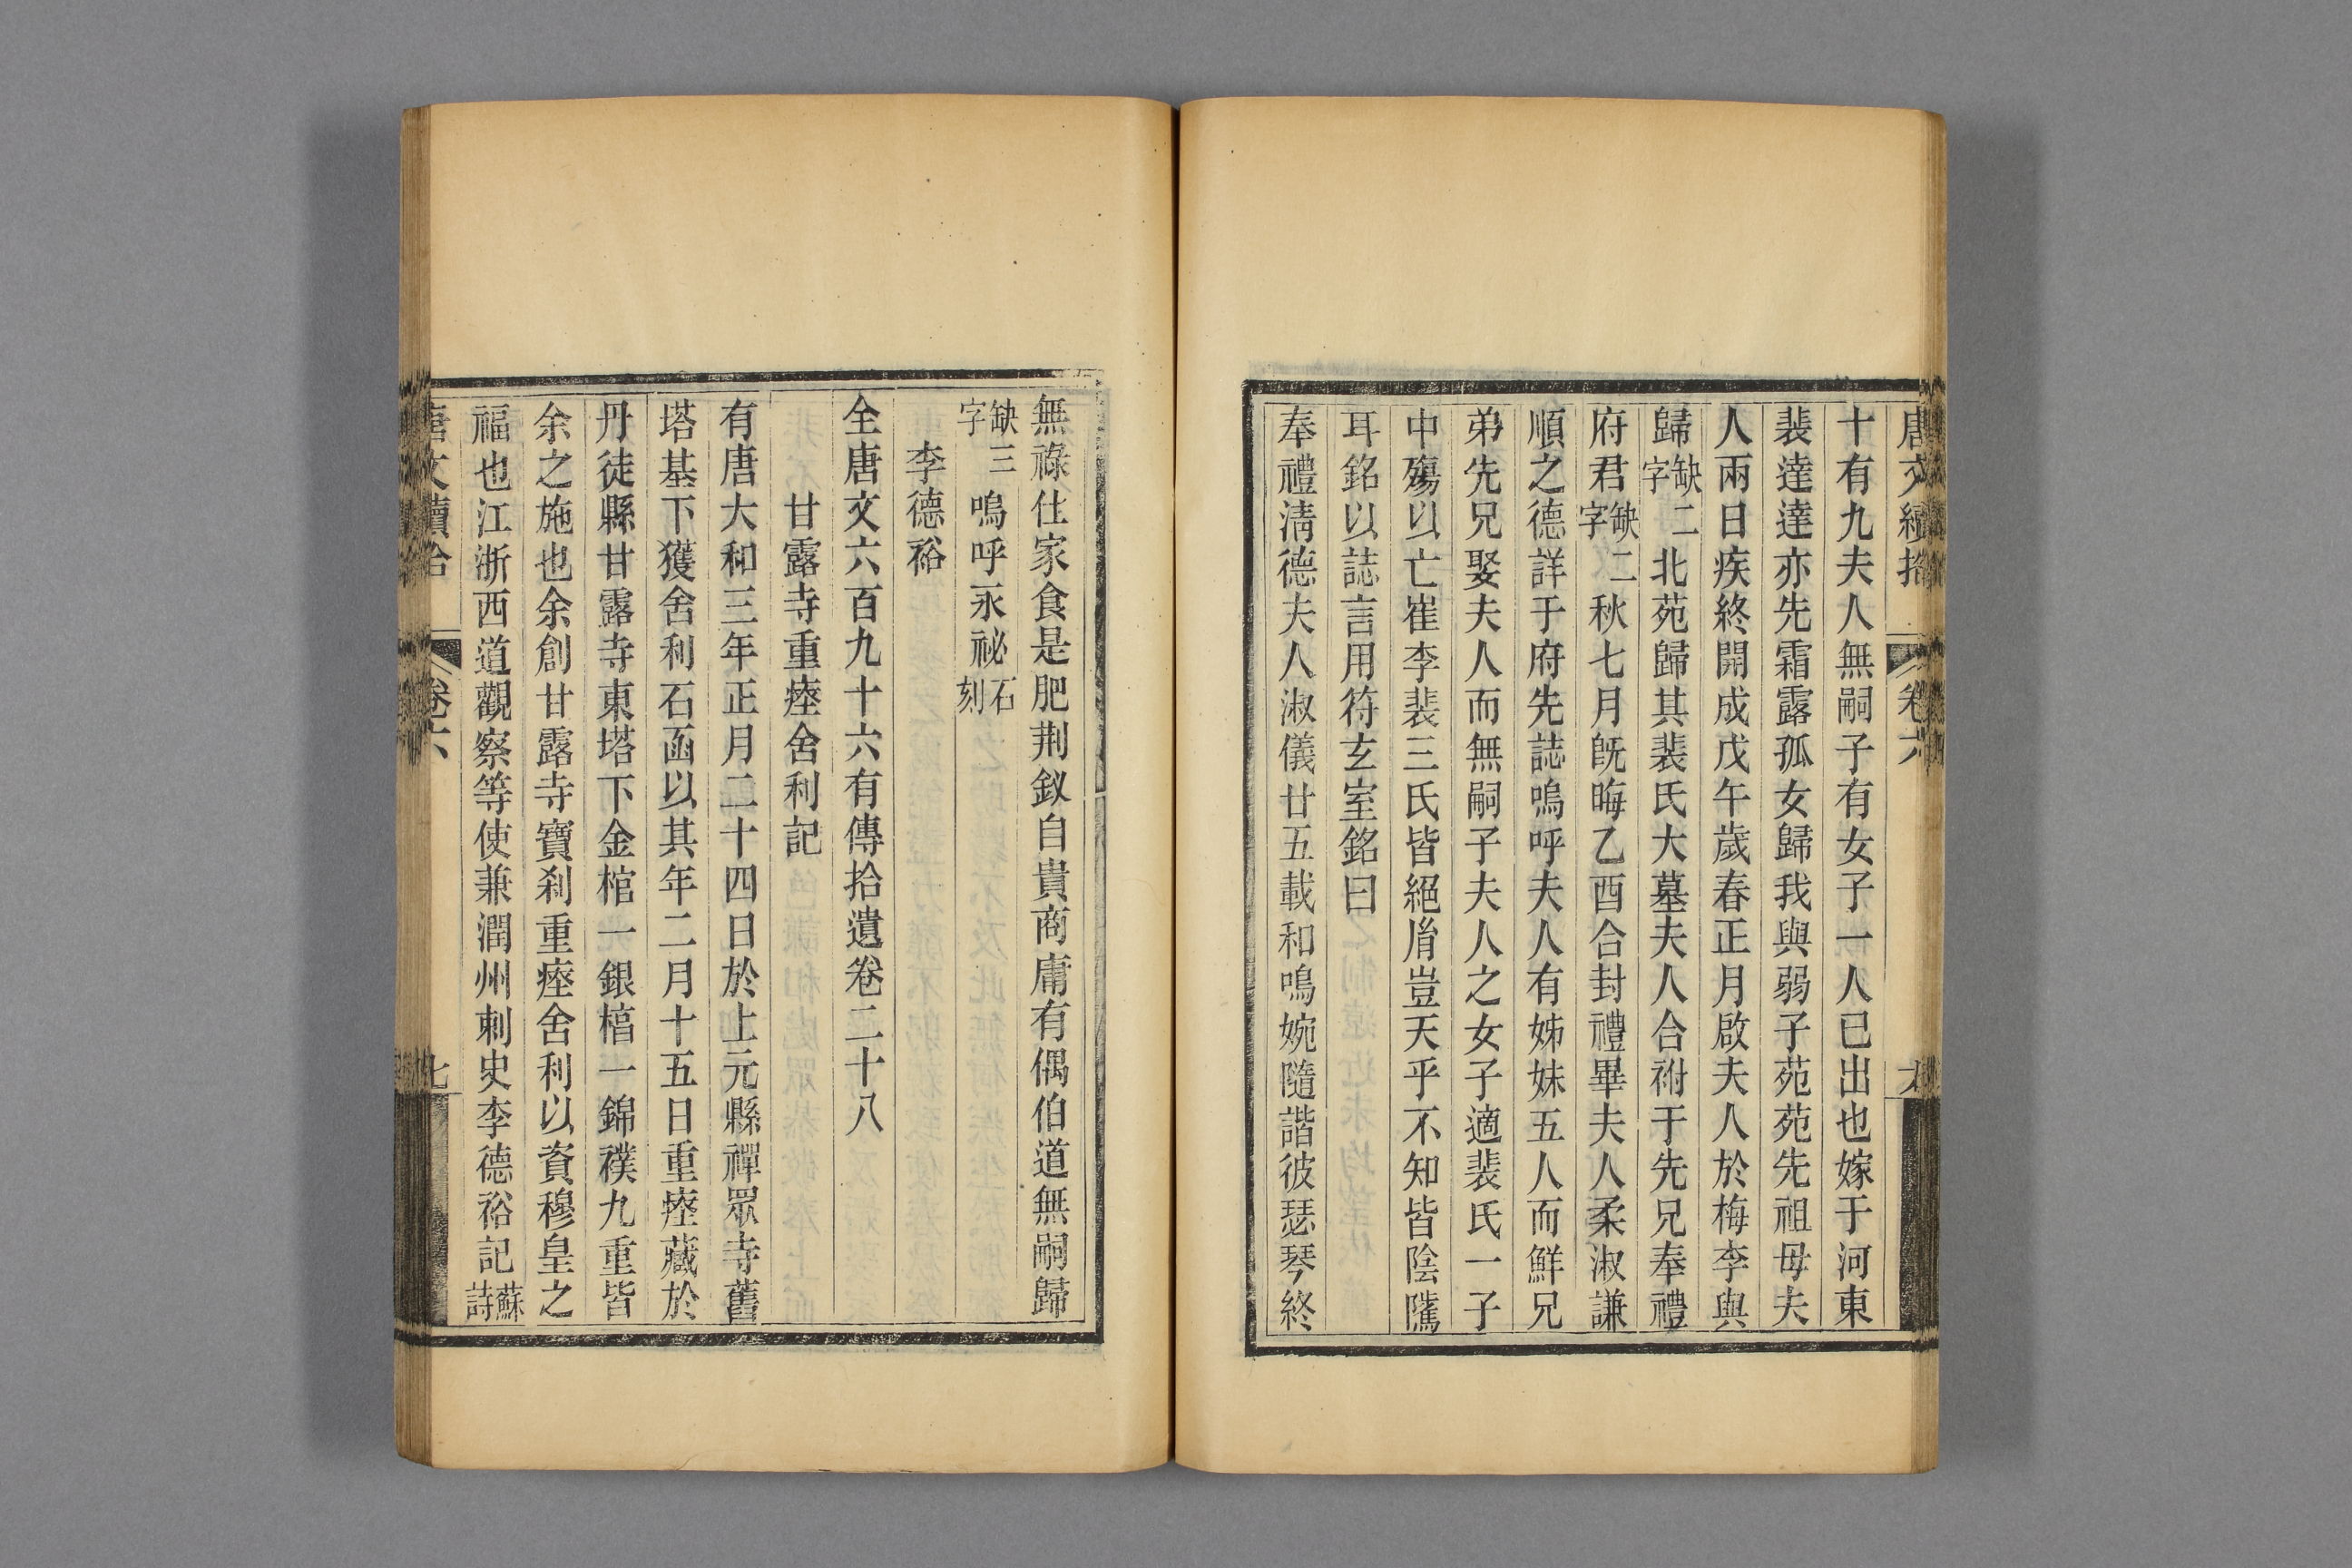 唐文續拾 卷六
十有九夫人無嗣子有女子一人已出也嫁于河東
裴達達亦先霜露孤女歸我與弱子苑苑先祖母夫
人兩日疾終開成戊午歲春正月啟夫人於梅李與
歸缺二字北苑歸其裴氏大墓夫人合祔于先兄奉禮
府君缺二字秋七月旣晦乙酉合封禮畢夫人柔淑謙
順之德詳于府先誌嗚呼夫人有姊妹五人而鮮兄
弟先兄娶夫人而無嗣子夫人之女子適裴氏一子
中殤以亡崔李裴三氏皆絕胤豈天乎不知皆陰騭
耳銘以誌言用符玄室銘曰
奉禮淸德夫人淑儀廿五載和鳴婉隨諧彼瑟琴終
無祿仕家食是肥荆釵自貴商庸有偶伯道無嗣歸
缺三字嗚呼永祕石刻
李德裕
全唐文六百九十六有傳拾遺卷二十八
甘露寺重瘞舍利記
有唐大和三年正月二十四日於上元縣禪眾寺舊
塔基下獲舍利石函以其年二月十五日重瘞藏於
丹徒縣甘露寺東塔下金棺一銀槨一錦襆九重皆
余之施也余創甘露寺寶刹重瘞舍利以資穆皇之
福也江浙西道觀察等使兼潤州刺史李德裕記蘇詩
唐文續拾 卷六 七